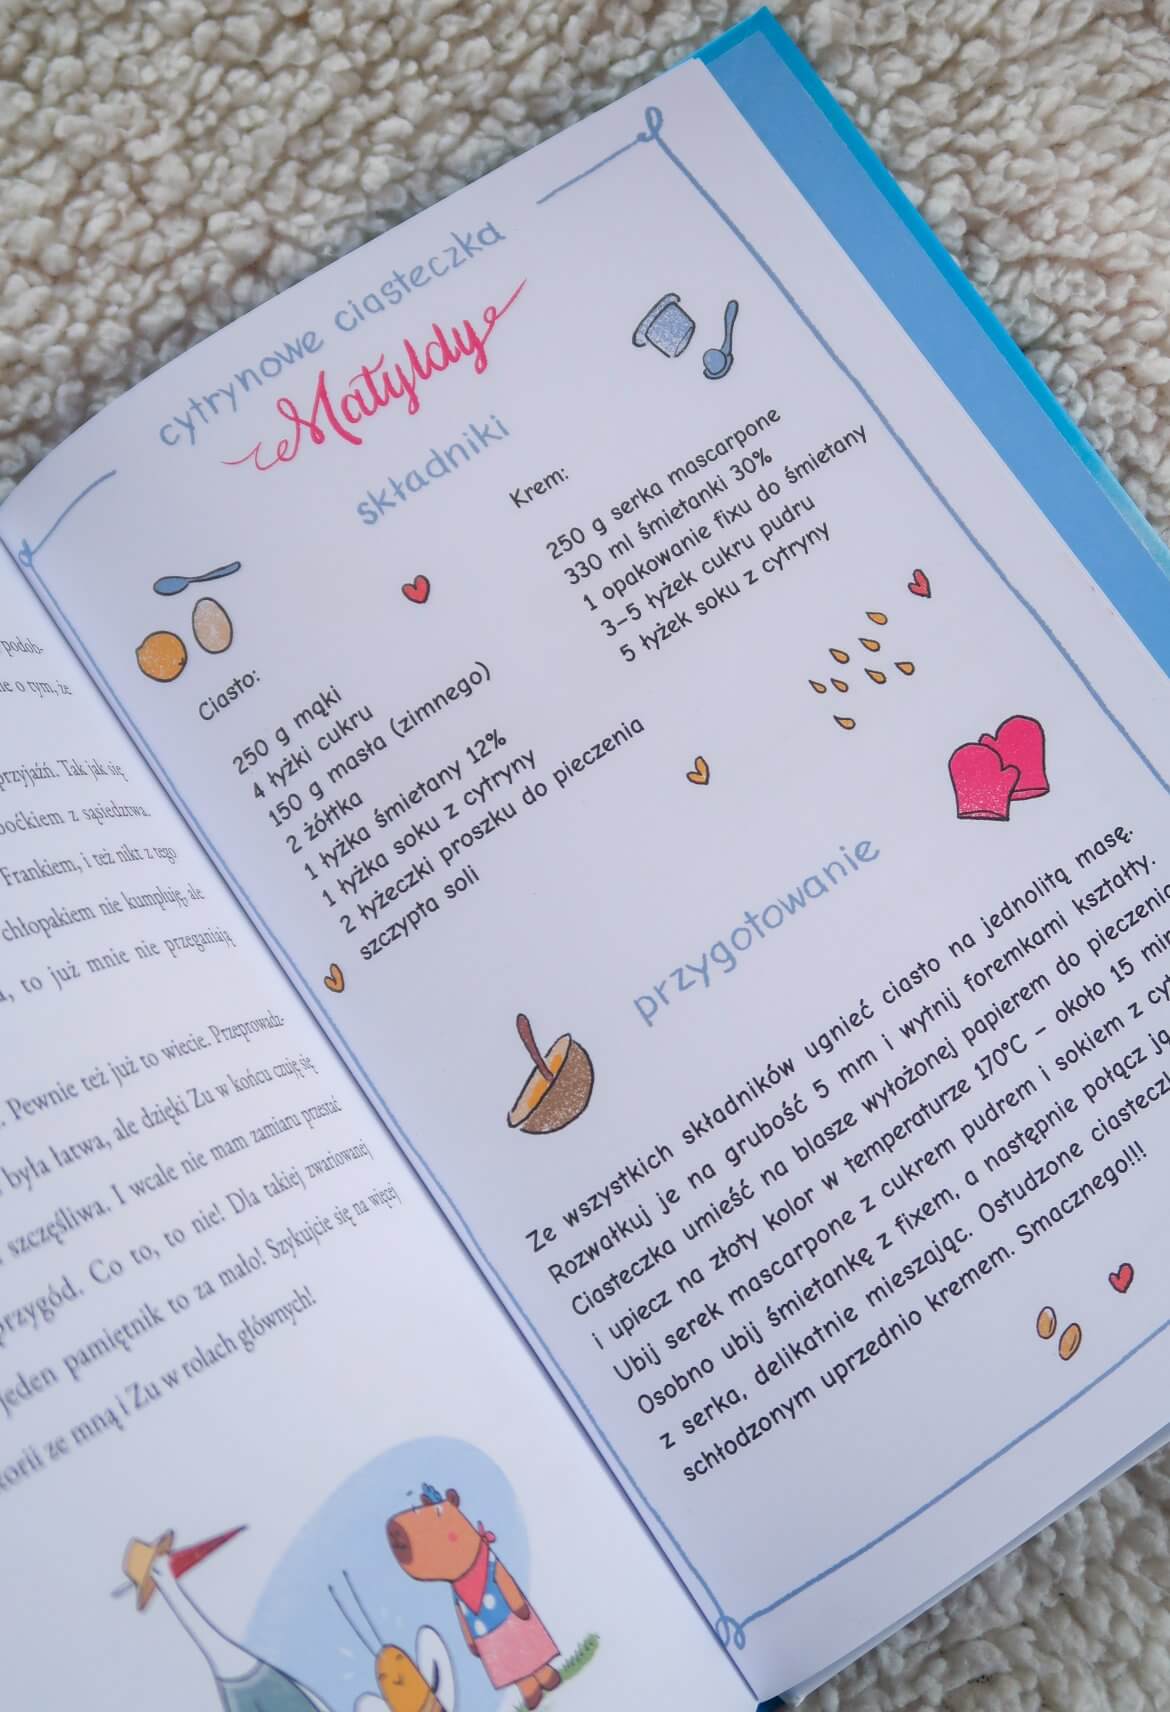 podob-
o tym, że
przyjaźń. Tak jak się
z sąsiedztwa.
Frankiem, i też nikt z tego
chłopakiem nie kumpluję, ale
to już mnie nie przeganiają
Pewnie też już to wiecie. Przeprowadz-
była łatwa, ale dzięki Zu w końcu czuję się
szczęśliwa. I wcale nie mam zamiaru przestać
przygód. Co to, to nie! Dla takiej zwariowanej
jeden pamiętnik to za mało! Szykujcie się na więcej
ze mną i Zu w rolach głównych!
cytrynowe ciasteczka
Matyldy
składniki
Ciasto:
250 g mąki
4 łyżki cukru
150 g masła (zimnego)
2 żółtka
1 łyżka śmietany 12%
1 łyżka soku z cytryny
2 łyżeczki proszku do pieczenia
szczypta soli
Krem:
250 g serka mascarpone
330 ml śmietanki 30%
1 opakowanie fixu do śmietany
3–5 łyżek cukru pudru
5 łyżek soku z cytryny
przygotowanie
Ze wszystkich składników ugnieć ciasto na jednolitą masę.
Rozwałkuj je na grubość 5 mm i wytnij foremkami kształty.
Ciasteczka umieść na blasze wyłożonej papierem do pieczenia
i upiecz na złoty kolor w temperaturze 170°C – około 15 min
Ubij serek mascarpone z cukrem pudrem i sokiem z
Osobno ubij śmietankę z fixem, a następnie połącz ją
z serka, delikatnie mieszając. Ostudzone
schłodzonym uprzednio kremem. Smacznego!!!